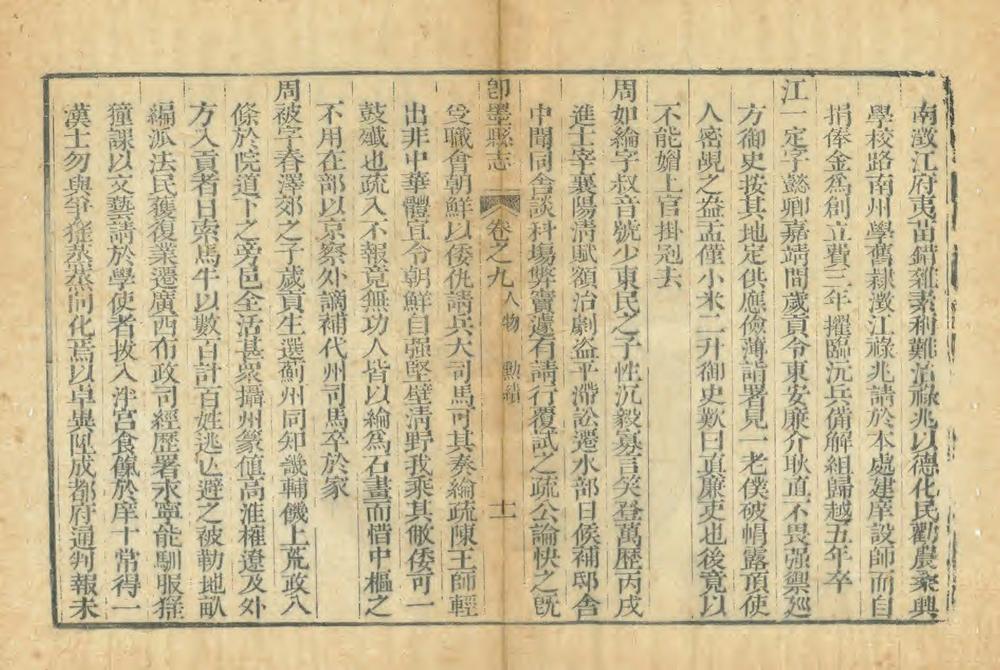 南澂江府夷苗錯雜素稱難治祿兆以德化民勸農桑興
學校路南州學舊隸澂江祿兆請於本處建庠設師而自
捐俸金爲創立費三年擢臨沅兵備解組歸越五年卒
江一定字懿卿嘉靖間歲貢令東安廉介耿直不畏强禦廵
方御史按其地定供應儉薄詣署見一老僕破帽露頂使
人密覘之盎盂僅小米二升御史歎曰眞廉吏也後竟以
不能媚上官掛冠去
周如綸字叔音號少東民之子性沉毅寡言笑登萬歷丙戌
進士宰襄陽淸賦額治劇盜平滯訟遷水部日候補邸舍
中聞同舍談科塲弊竇遽有請行覆試之疏公論快之旣
卽墨縣志 卷之九 人物 勲績 十一
受職會朝鮮以倭仇請兵大司馬可其奏綸疏陳王師輕
出非中華體宜令朝鮮自强堅壁淸野我乘其敝倭可一
鼓殲也疏入不報竟無功人皆以綸爲石畫而惜中樞之
不用在部以京察外謫補代州司馬卒於家
周被字春澤郊之子歲貢生選薊州同知畿輔饑上荒政八
條於院道下之旁邑全活甚衆攝州篆値高淮榷遼及外
方入貢者日索馬牛以數百計百姓逃亾避之被勒地畝
編派法民獲復業遷廣西布政司經歷署永寧能馴服猺
獞課以文藝請於學使者拔入泮宮食餼於庠十常得一
漢士勿與爭猺蒸蒸向化焉以卓異陞成都府通判報未